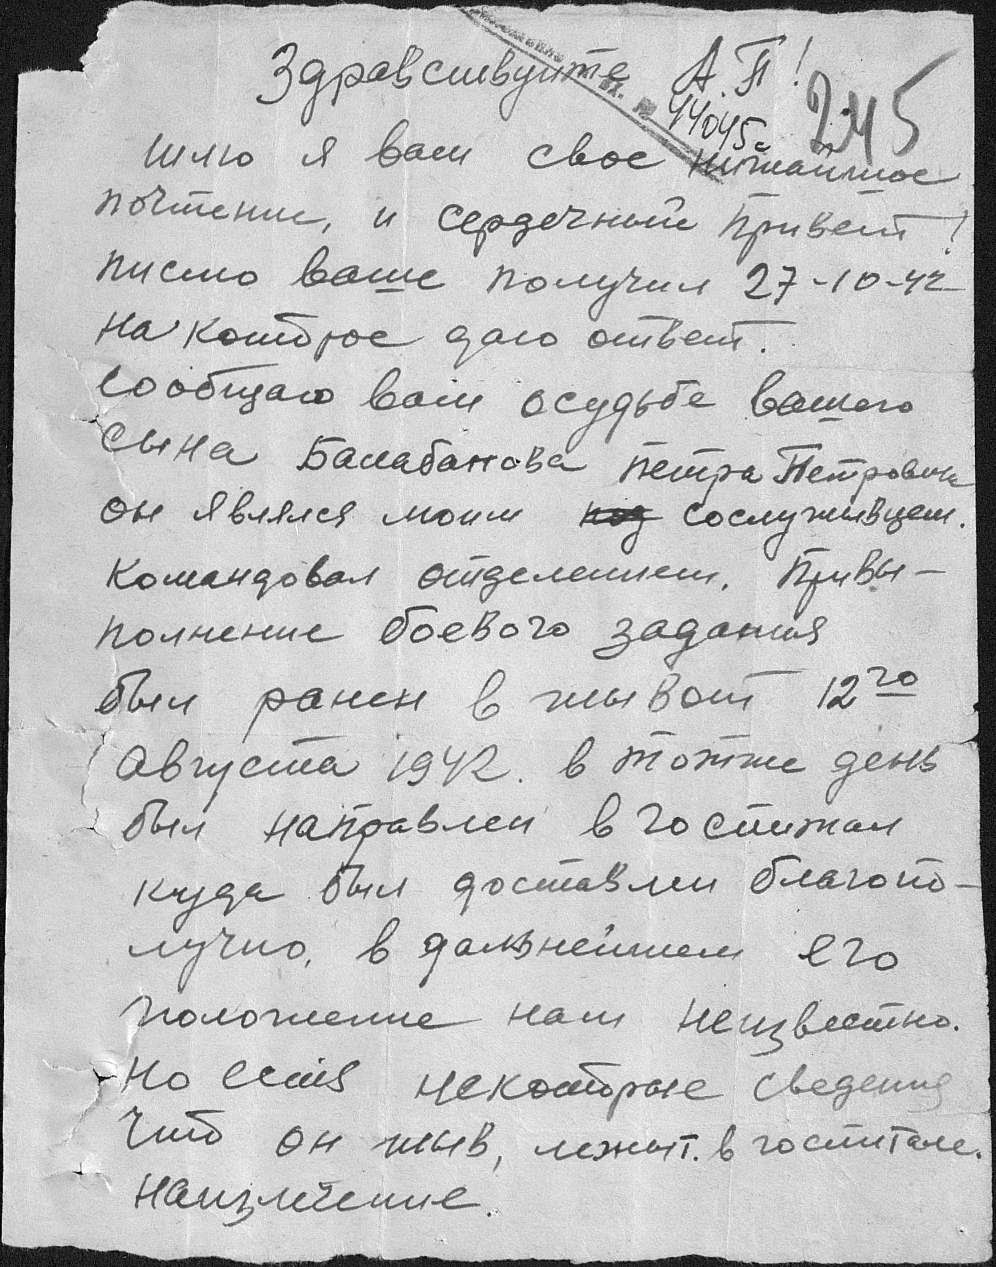 Здравствуйте А.П!
44045
245
шлю я вам свое нижайшое
почтение, и сердечный привет!
писмо ваше получил 27-10-42
на котброе даю ответ.
Сообщаю вам осудьбе вашего
сына Балабанова Петра Петровича
он являлся моим под сослуживцем.
командовал отделением. Привы-
полнение боевого задания
был ранен в жывот 12го
августа 1942. в тотже день
был направлен в госпитал
куда был доставлен благопо-
лучно, в дальнейшем его
положение нам неизвестно.
но есть некоторые сведения
что он жыв, лежит. в госпитале.
наизлечение.